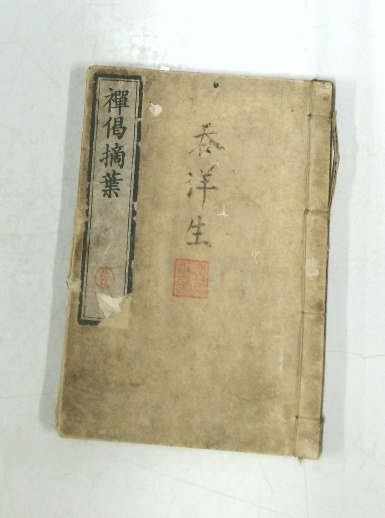 禪偈摘葉
呑洋生